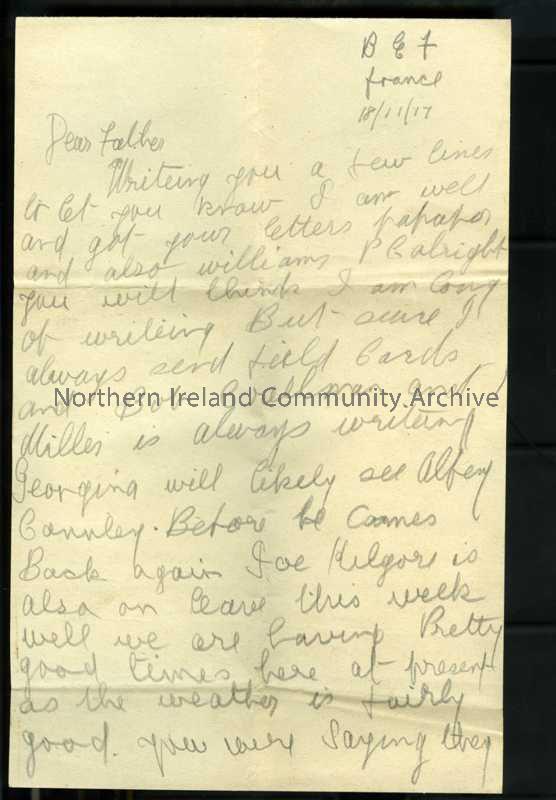 B E F
france
18/11/17
Dear Father
Writeing you a few lines
to let you know I am well
and got your letters papapor
and also williams P C alright
you will think I am long
of writeing But sure I
always send field Cards
and Bob and
Northern Ireland Community Archive
Miller is always writeing
Georgina will likely see Alfey
Connley. Before he comes
Back again Joe Kilgore is
also on leave this week
well we are having Pretty
good times here at present
as the weather is fairly
good. you were saying they